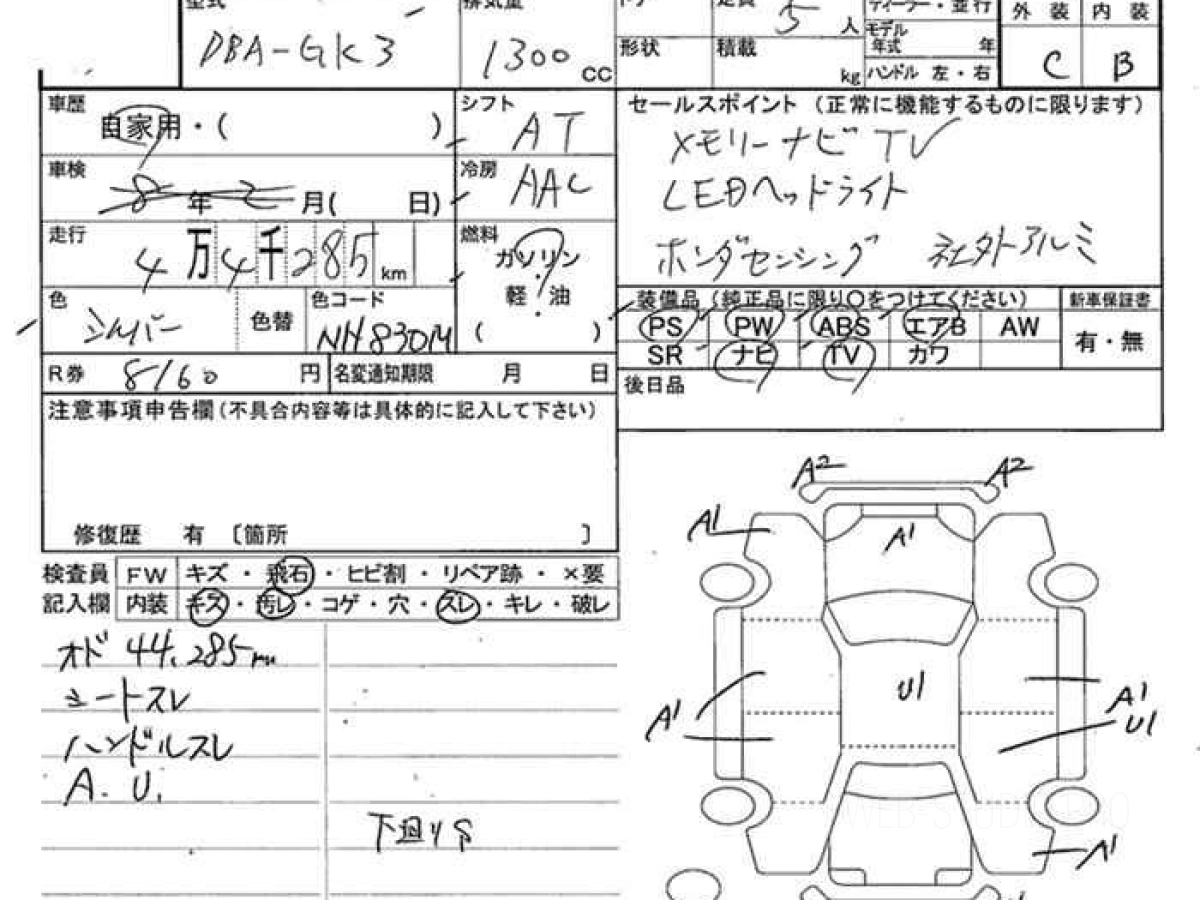 型式 排気量 定員 ディーラー・並行 外装 内装
DBA-GK3 1300 CC 5 人 モデル年式 年 C B
形状 積載 kg ハンドル 左・右
車歴 自家用・( ) シフト AT
セールスポイント (正常に機能するものに限ります)
メモリーナビ TV
車検 8年2月( 日) 冷房 AAC
LEDヘッドライト
走行 4万4千285km 燃料 ガソリン・軽油・( )
ホンダセンシング 社外アルミ
色 シルバー 色替 色コード NH830M
装備品 (純正品に限り○をつけてください) 新車保証書
PS PW ABS エアB AW 有・無
SR ナビ TV カワ
R券 8160円 名変通知期限 月 日
後日品
注意事項申告欄(不具合内容等は具体的に記入して下さい)
修復歴 有 〔箇所 〕
検査員 FW キズ・飛石・ヒビ割・リペア跡・×要
記入欄 内装 キズ・汚レ・コゲ・穴・スレ・キレ・破レ
オド 44,285
シートスレ
ハンドルスレ
A. U.
下廻りS
A2 A2
A1 A1
U1
A1 A1
U1
A1